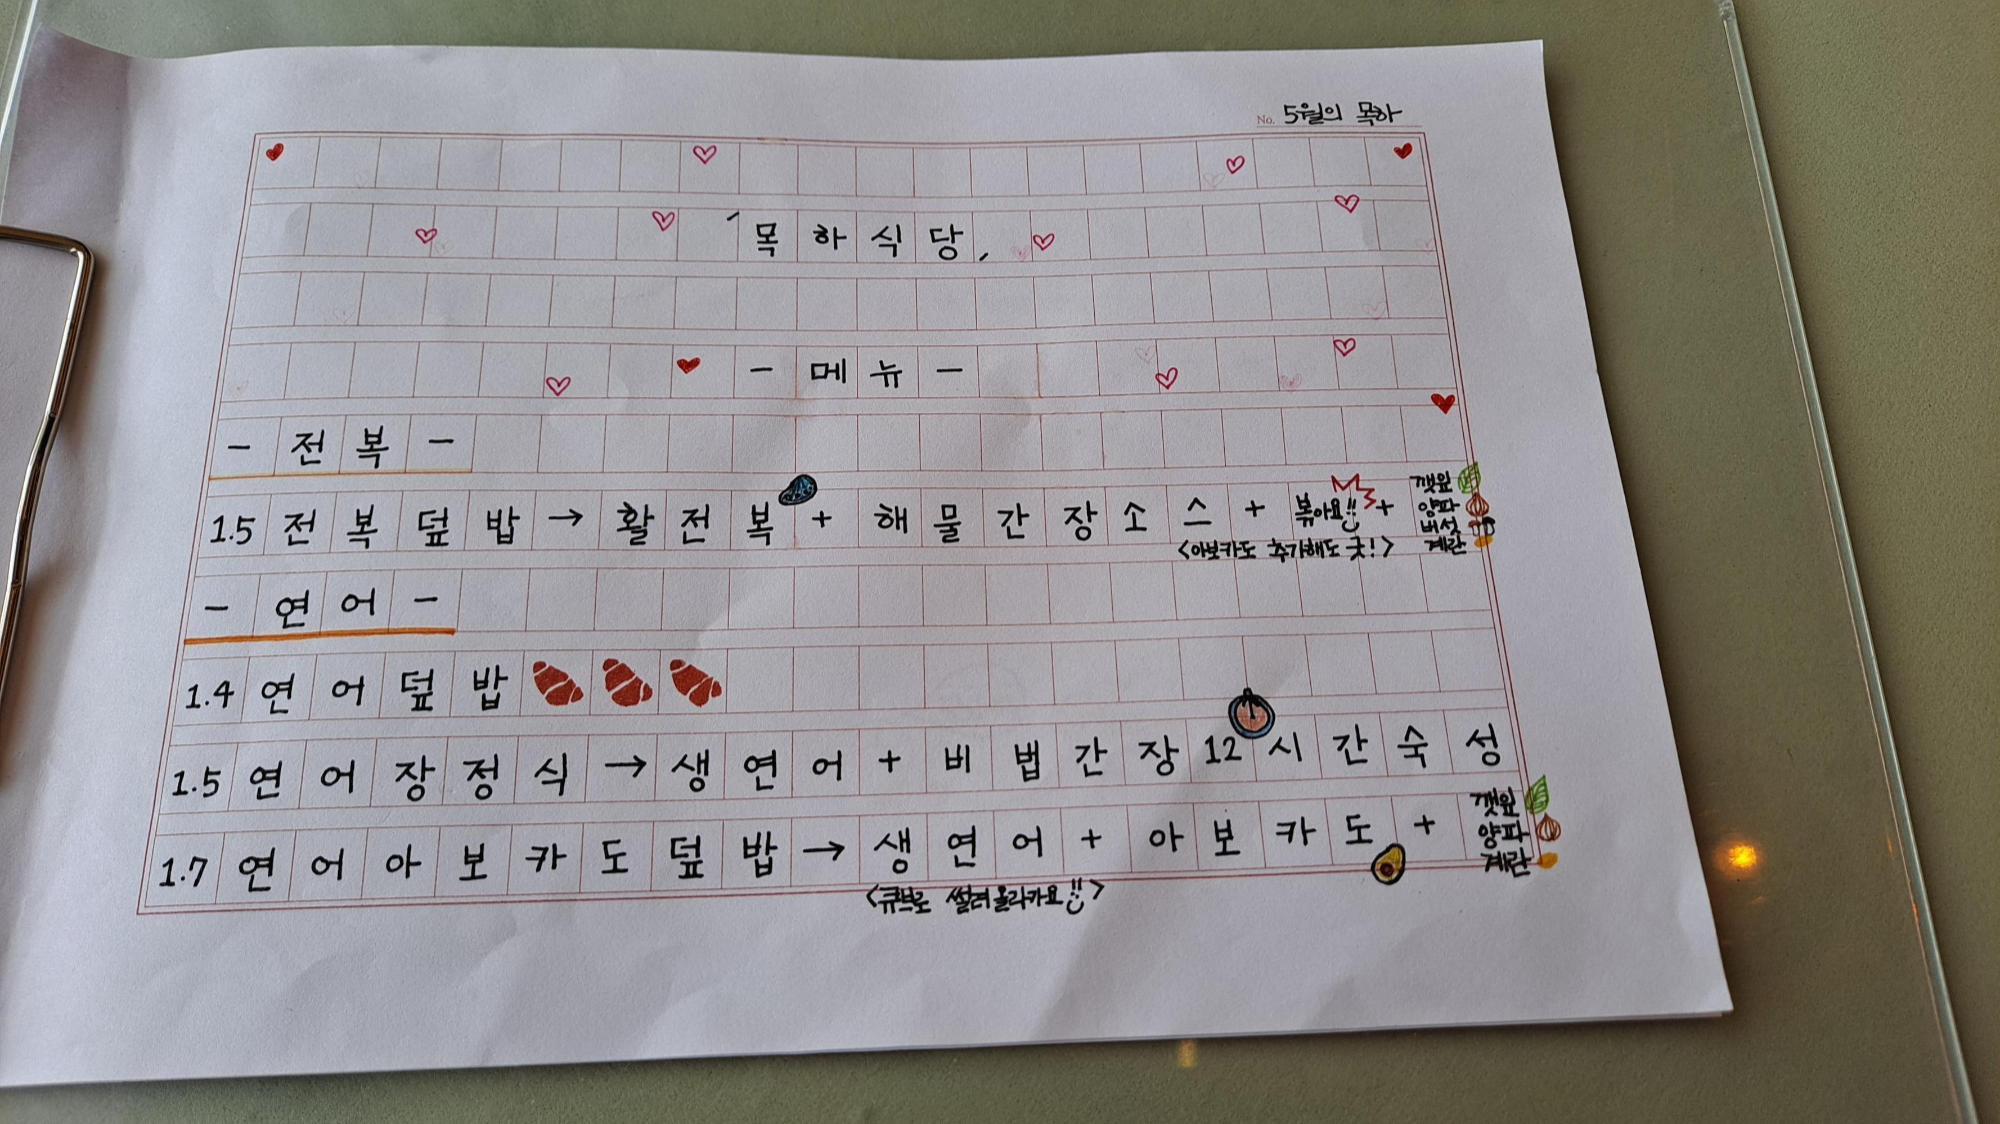 No. 5월의 목하
'목하식당,
- 메뉴 -
- 전복 -
1.5 전복덮밥 → 활전복 + 해물간장소스 + 볶아요!! + 깻잎 양파 버섯 계란
<아보카도 추가해도 굿!>
- 연어 -
1.4 연어덮밥
1.5 연어장정식 → 생연어 + 비법간장 12시간숙성
1.7 연어아보카도덮밥 → 생연어 + 아보카도 + 깻잎 양파 계란
<큐브로 썰려올라가요!!>